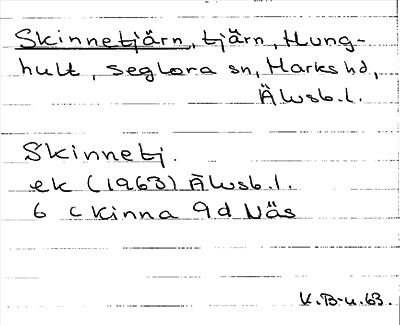 Skinnetjärn, tjärn, Hung-
hult, Seglora sn, Marks hd,
Älvsb. l.
Skinnetj.
ek (1963) Älvsb. l.
6 c Kinna 9d Näs
K. B-u. 63.